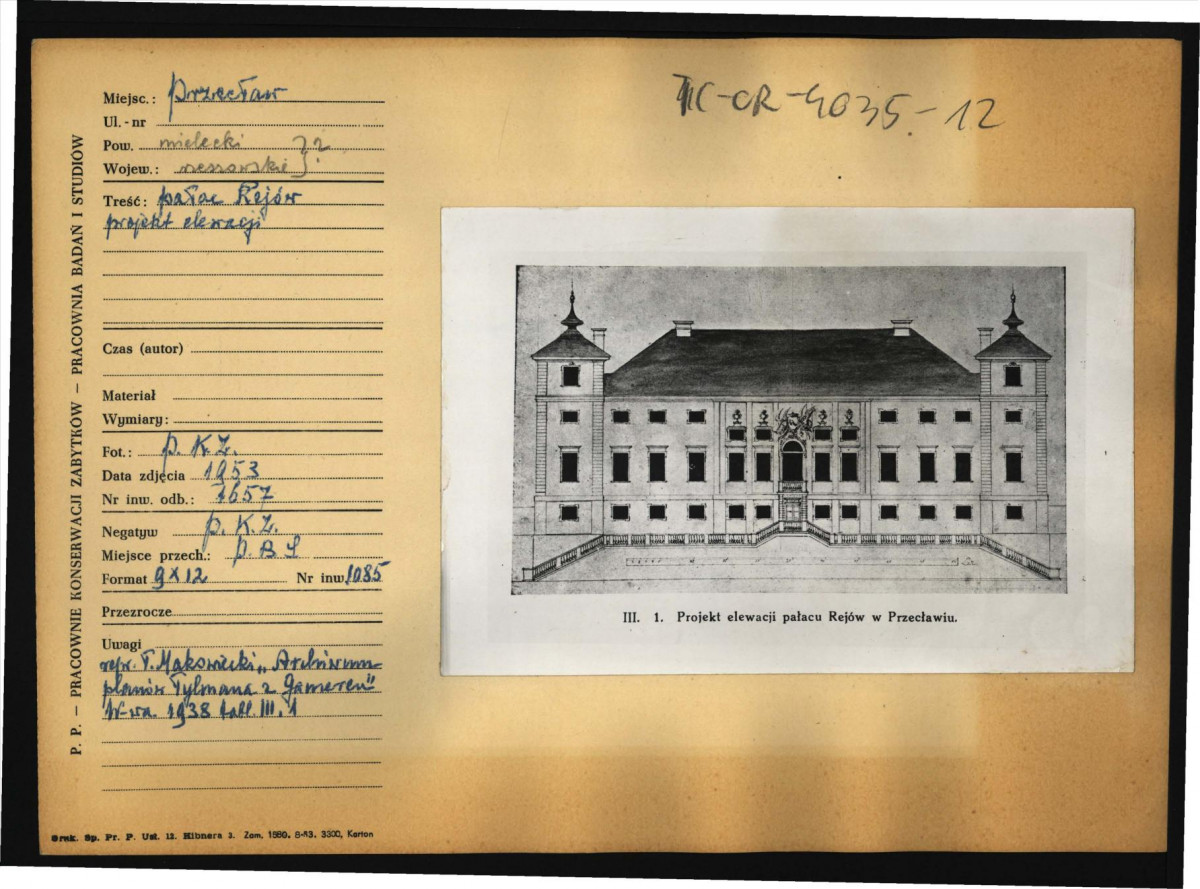 IIC-CR-4035.-12
P. P. – PRACOWNIE KONSERWACJI ZABYTKÓW – PRACOWNIA BADAŃ I STUDIÓW
Miejsc.: Przecław
Ul.-nr
Pow. mielecki
Wojew.: rzeszowskie }?
Treść: pałac Rejów
projekt elewacji
Czas (autor)
Materiał
Wymiary:
Fot.: P. K. Z.
Data zdjęcia 1953
Nr inw. odb.: 1657
Negatyw P. K. Z.
Miejsce przech.: P B S
Format 9x12 Nr inw. 1085
Przezrocze
Uwagi
repr. T. Makowiecki „Archiwum
planów Tylmana z Gameren"
W-wa. 1938 tabl. III. 1
Druk. Sp. Pr. P. Ust. 12. Hibnera 3. Zam. 1580. 8-53. 3300, Karton
III. 1. Projekt elewacji pałacu Rejów w Przecławiu.